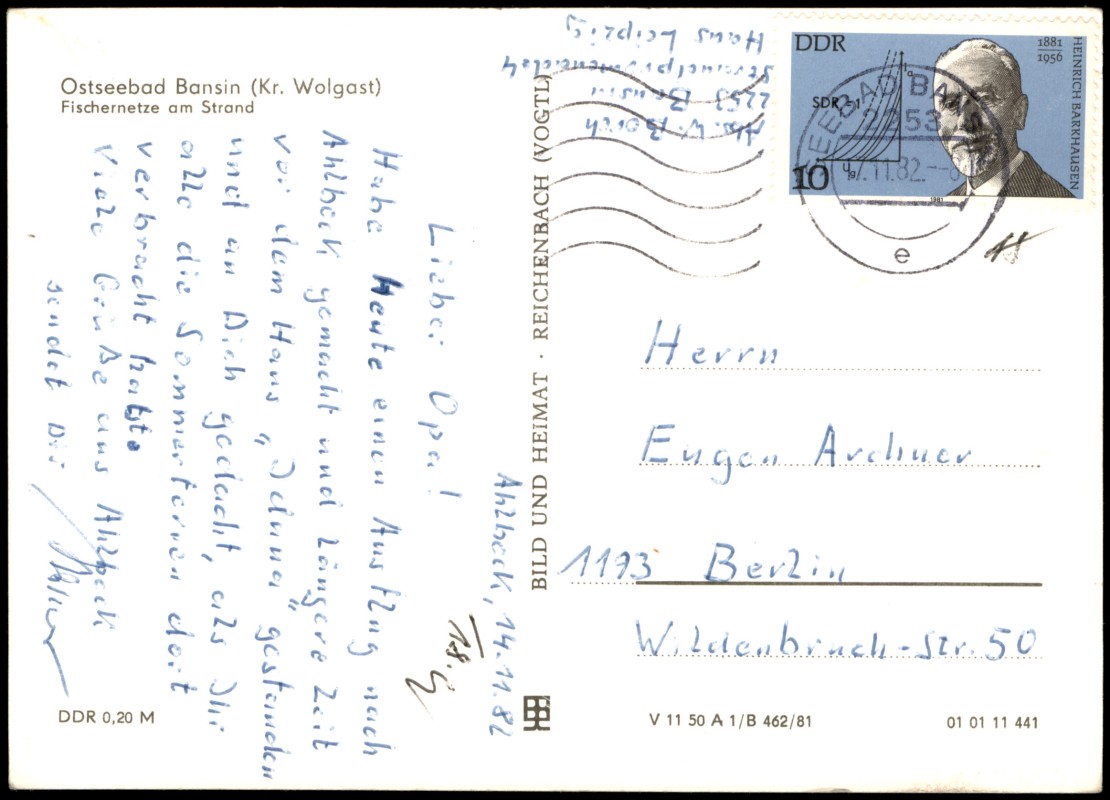 Ostseebad Bansin (Kr. Wolgast)
Fischernetze am Strand
Ahlbeck, 14.11.82
Lieber Opa!
Habe Heute einen Ausflug nach
Ahlbeck gemacht und längere Zeit
vor dem Haus „Delma“ gestanden
und an Dich gedacht, als Ihr
alle die Sommerferien dort
verbracht hatte
Viele Grüße aus Ahlbeck
sendet Dir
18.
DDR 0,20 M
BILD UND HEIMAT · REICHENBACH (VOGTL)
Abs. W. Borch
2253 Bansin
Strandpromenade 4
Haus Leipzig
DDR
1881
1956
HEINRICH BARKHAUSEN
SDR = 1
Ia
Ug
10
1981
SEEBAD BANSIN
2253
.11.82.--8
e
18
Herrn
Eugen Archner
1193 Berlin
Wildenbruch-Str. 50
V 11 50 A 1/B 462/81
01 01 11 441